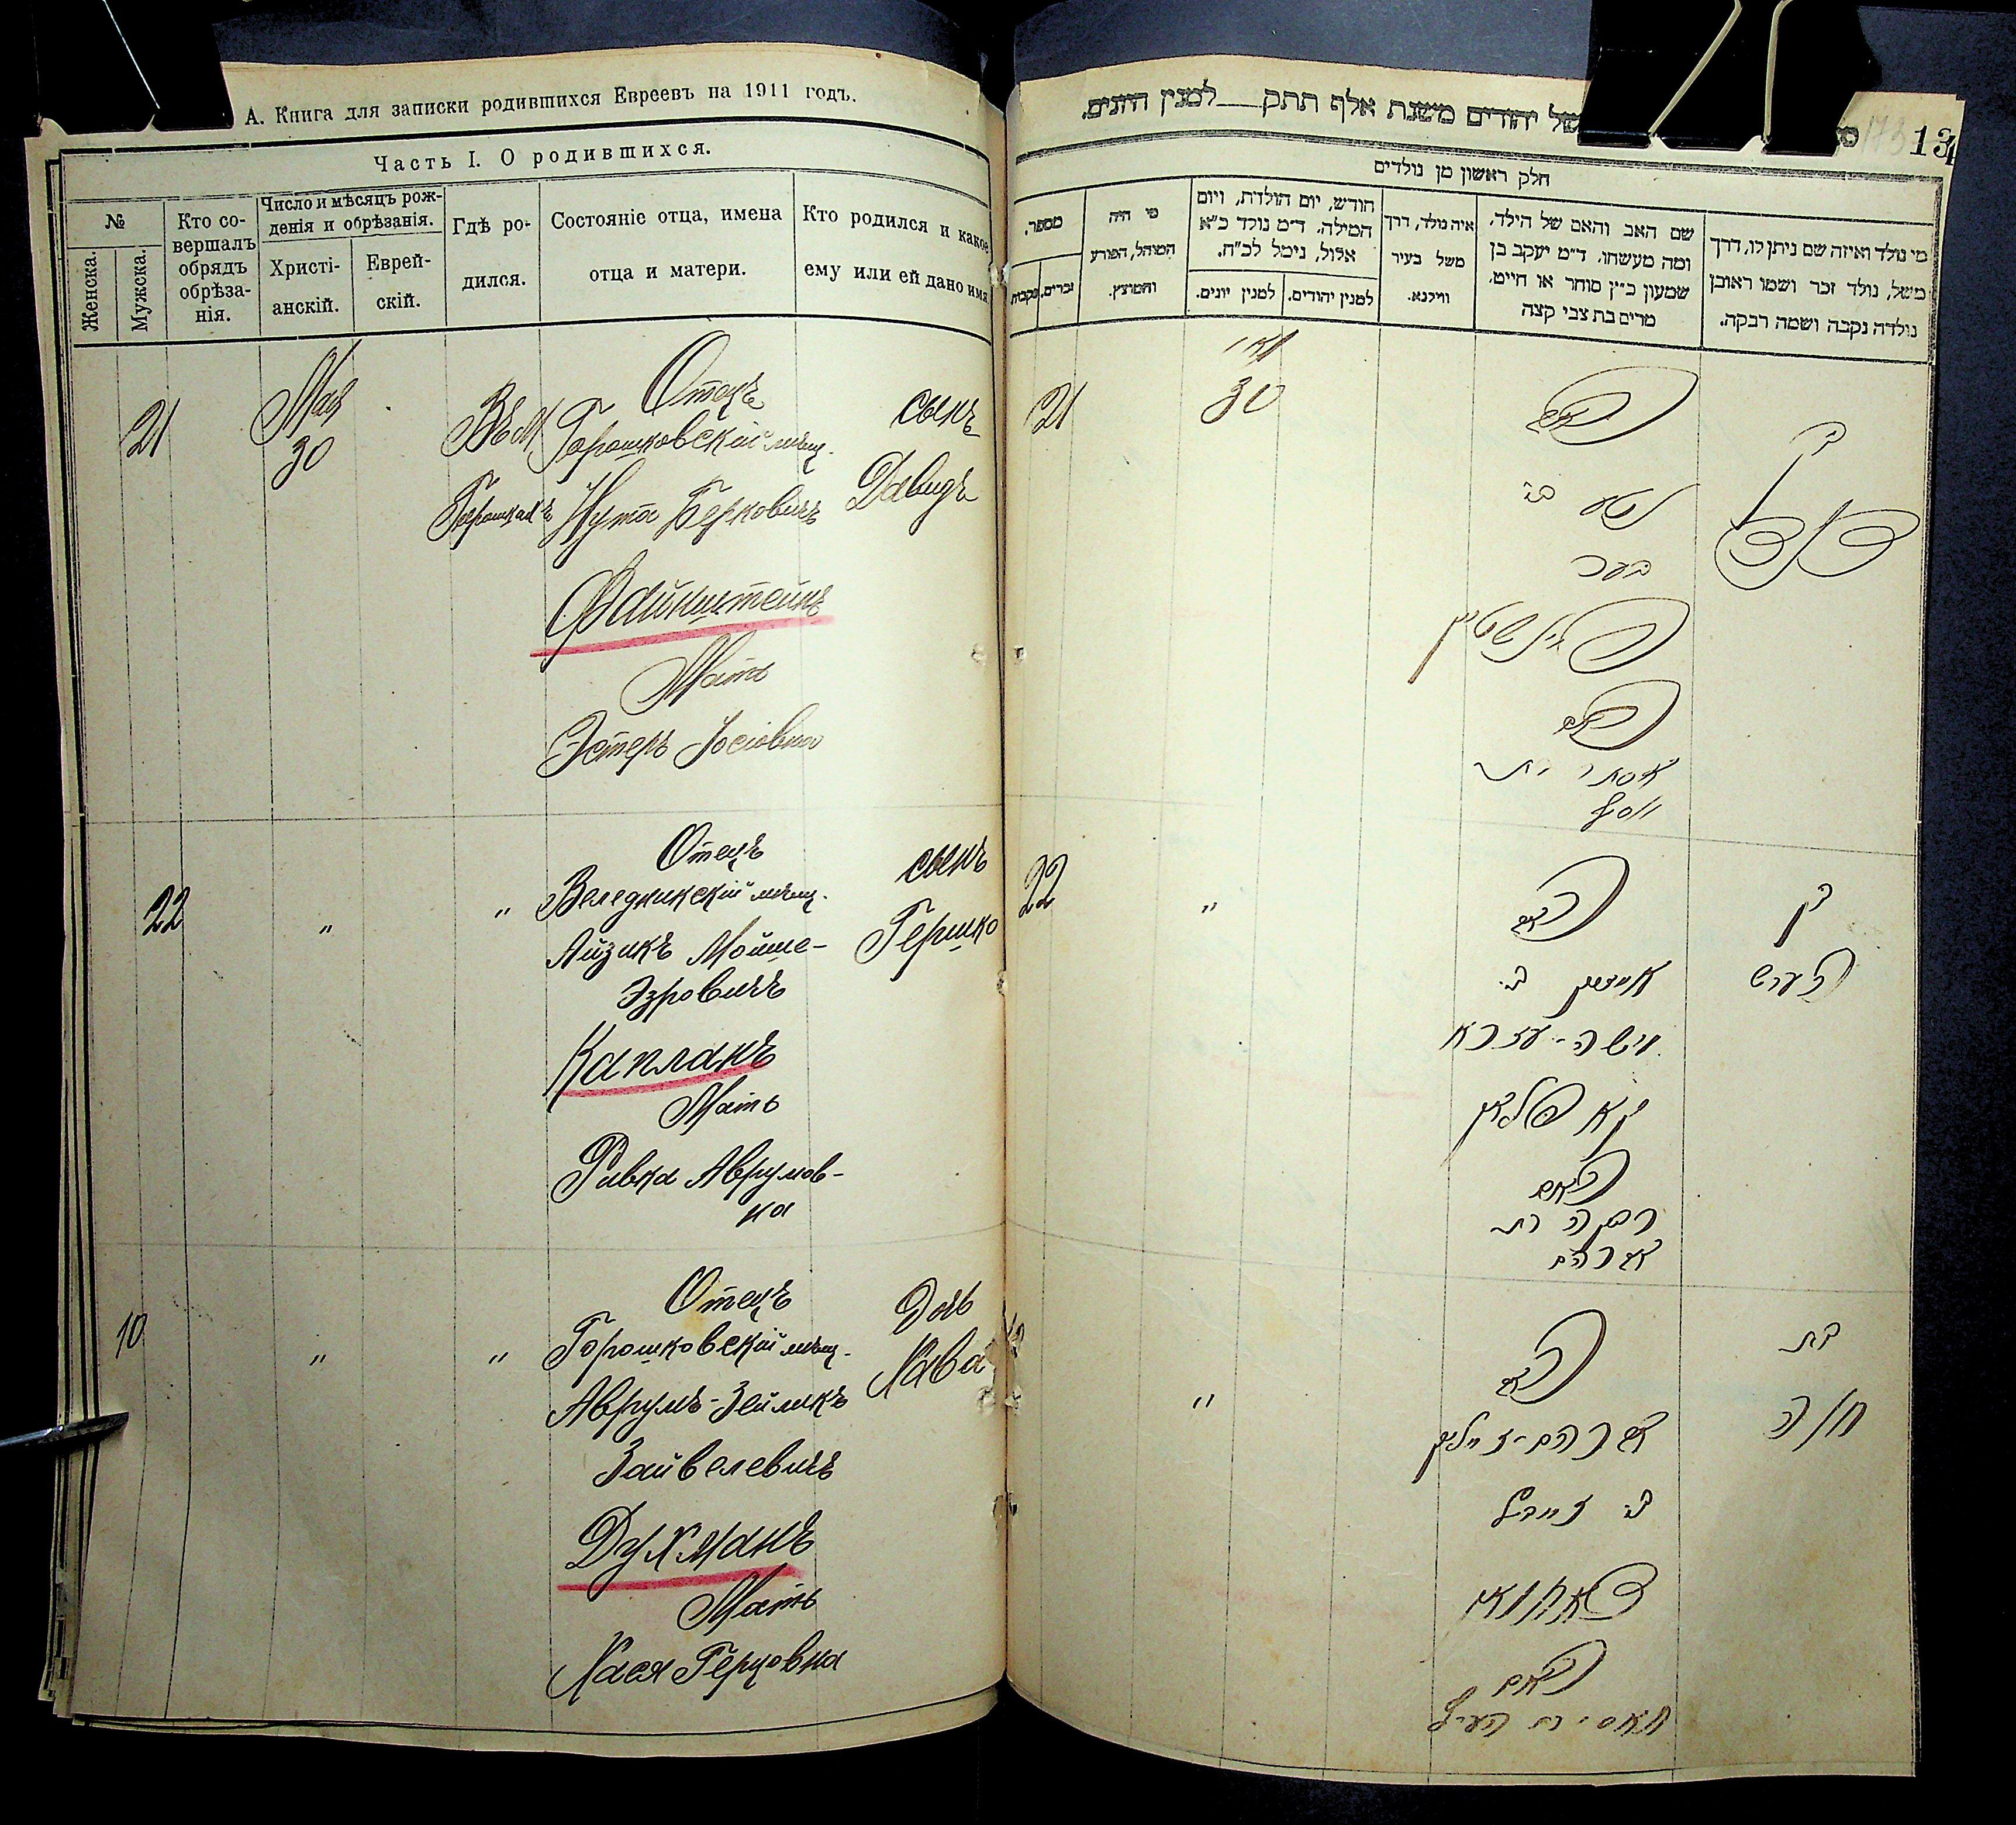 А. Книга для записки родившихся Евреевъ на 1911 годъ.
Часть I. О родившихся.
№
Женска.
Мужска.
Кто со-
вершалъ
обрядъ
обрѣза-
нія.
Число и мѣсяцъ рож-
денія и обрѣзанія.
Христі-
анскій.
Еврей-
скій.
Гдѣ ро-
дился.
Состояніе отца, имена
отца и матери.
Кто родился и какое
ему или ей дано имя
21
Мая
30
Въ м.
Горошкахъ
Отецъ
Горошковскій мѣщ.
Нута Берковичъ
Файнштейнъ
Мать
Эстеръ Іосіовна
сынъ
Давидъ
22
"
"
Отецъ
Веледникскій мѣщ.
Айзикъ Мойше-
Эзровичъ
Капланъ
Мать
Ривка Аврумов-
на
сынъ
Гершко
10
"
"
Отецъ
Горошковскій мѣщ.
Аврумъ-Зейликъ
Зайвелевичъ
Духманъ
Мать
Хася Герцовна
Дочь
Хава
של יהודים משנת אלף תתק___למנין היונים.
134
חלק ראשון מן נולדים
מספר.
זכרים.
נקבות
מי היה
המוהל, הפורע
והמוצץ.
חודש, יום הולדת, ויום
המילה. ד"מ נולד כ"א
אלול, נימל לכ"ח.
למנין יונים.
למנין יהודים.
איה נולד, דרך
משל בעיר
ווילנא.
שם האב והאם של הילד,
ומה מעשהו. ד"מ יעקב בן
שמעון כ"ץ סוחר או חייט,
מרים בת צבי קצה
מי נולד ואיזה שם ניתן לו, דרך
משל, נולד זכר ושמו ראובן
נולדה נקבה ושמה רבקה.
21
מאי
30
האב
נטע ב:
בער
פיינשטיין
האם
אסתר בת
יוסף
בן
22
"
האב
אייזיק ב:
מישה-עזרא
קאפלאן
האם
רבקה בת
אברהם
בן
הערש
"
האב
אברהם-זייליק
ב: זיירל
האם
חאסי בת
בת
חוה